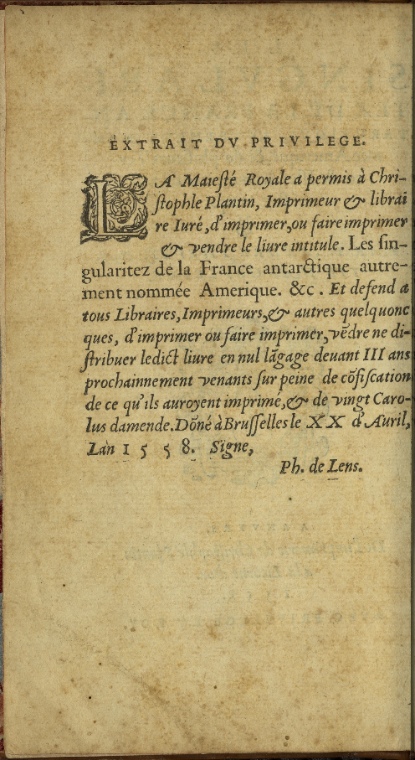 EXTRAIT DV PRIVILEGE.
LA Maiesté Royale a permis à Chri-
stophle Plantin, Imprimeur & librai
re Iuré, d'imprimer, ou faire imprimer
& vendre le liure intitule. Les sin-
gularitez de la France antarctique autre-
ment nommée Amerique. &c. Et defend a
tous Libraires, Imprimeurs, & autres quelquonc
ques, d'imprimer ou faire imprimer, vẽdre ne di-
stribuer ledict liure en nul lãgage deuant III ans
prochainnement venants sur peine de cõfiscation
de ce qu'ils auroyent imprimé, & de vingt Caro-
lus damende. Dõné à Brusselles le XX d'Auril,
Lan 1558. Signe,
Ph. de Lens.